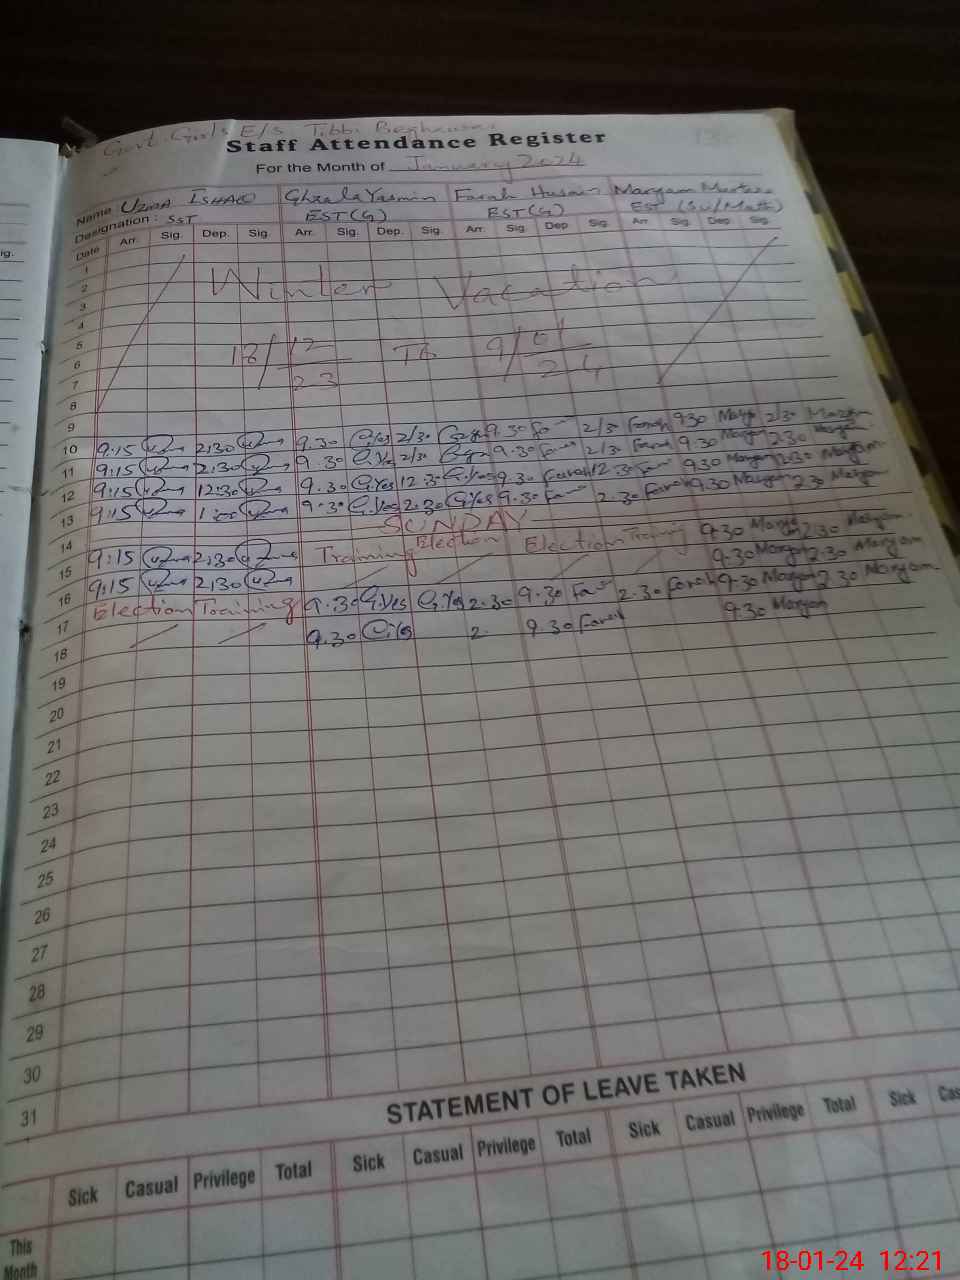 Govt. Girls E/S Tibbi
Staff Attendance Register
For the Month of January 2024
Name UZMA ISHAQ Ghzala Yasmin Farah Husain Maryam
Designation : SST EST(G) EST(G) EST (Sc/Math)
Date Arr. Sig. Dep. Sig. Arr. Sig. Dep. Sig. Arr. Sig. Dep Sig. Arr. Sig. Dep Sig.
1
2 Winter Vacation
3
4
5 18/12 To 9/01
6 23 24
7
8
9
10 9:15 2:30 9.30 2/30 9.30 2/30 Farah 9.30 2/30 Maryam
11 9:15 2:30 9.30 2/30 9.30 2/30 Farah 9.30 Maryam 2.30 Maryam
12 9:15 12:30 9.30 G.Yes 12.30 G.Yes 9.30 Farah 12.30 9.30 Maryam 2.30 Maryam
13 9:15 9.30 G.Yes 2.30 G.Yes 9.30 2.30 Farah 9.30 Maryam 2.30 Maryam
14 SUNDAY
15 9:15 2:30 Training Election Election Training 9.30 Maryam 2.30 Maryam
16 9:15 2:30 9.30 Maryam 2.30 Maryam
17 Election Training 9.30 G.Yes G.Yes 2.30 9.30 Farah 2.30 Farah 9.30 Maryam 2.30 Maryam
18 9.30 2. 9.30 Farah 9.30 Maryam
19
20
21
22
23
24
25
26
27
28
29
30
31
STATEMENT OF LEAVE TAKEN
Sick Casual Privilege Total Sick Casual Privilege Total Sick Casual Privilege Total Sick Cas
This
Month
18-01-24 12:21